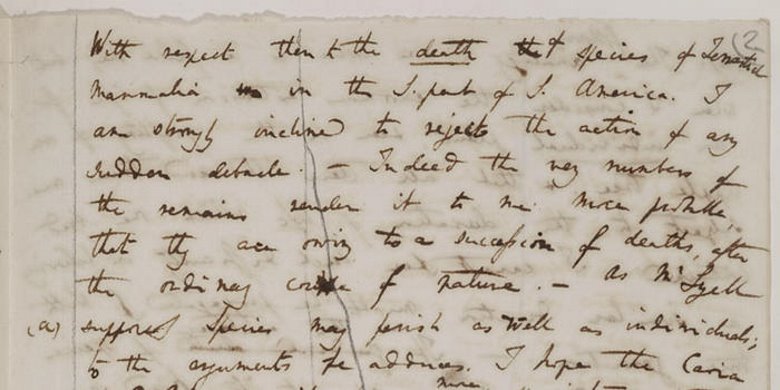 (2
With respect then to the death of species of Terrestrial
Mammalia in the S. part of S. America. I
am strongly inclined to reject the action of any
sudden debacle. — Indeed the very numbers of
the remains render it to me more probable
that they are owing to a succession of deaths, after
the ordinary course of nature. — As Mr Lyell
(a) supposes Species may perish as well as individuals;
to the arguments he adduces. I hope the Cavia
more